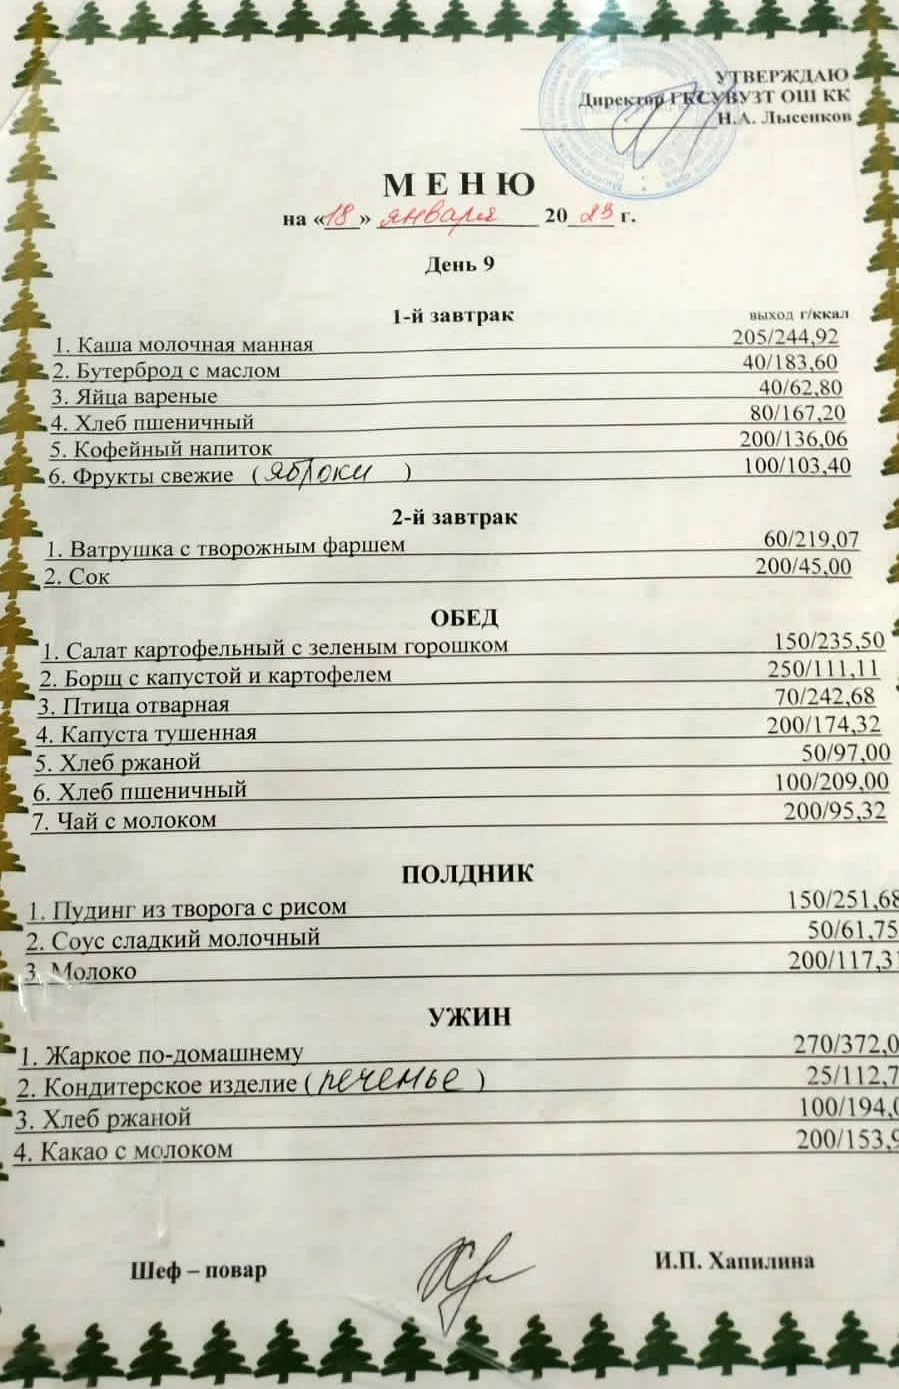 УТВЕРЖДАЮ
Директор ГКСУВУЗТ ОШ КК
Н.А. Лысенков
МЕНЮ
на «18» января 2023 г.
День 9
1-й завтрак
выход г/ккал
1. Каша молочная манная 205/244,92
2. Бутерброд с маслом 40/183,60
3. Яйца вареные 40/62,80
4. Хлеб пшеничный 80/167,20
5. Кофейный напиток 200/136,06
6. Фрукты свежие (яблоки) 100/103,40
2-й завтрак
1. Ватрушка с творожным фаршем 60/219,07
2. Сок 200/45,00
ОБЕД
1. Салат картофельный с зеленым горошком 150/235,50
2. Борщ с капустой и картофелем 250/111,11
3. Птица отварная 70/242,68
4. Капуста тушенная 200/174,32
5. Хлеб ржаной 50/97,00
6. Хлеб пшеничный 100/209,00
7. Чай с молоком 200/95,32
ПОЛДНИК
1. Пудинг из творога с рисом 150/251,68
2. Соус сладкий молочный 50/61,75
3. Молоко 200/117,31
УЖИН
1. Жаркое по-домашнему 270/372,0
2. Кондитерское изделие (печенье) 25/112,7
3. Хлеб ржаной 100/194,0
4. Какао с молоком 200/153,9
Шеф – повар И.П. Хапилина